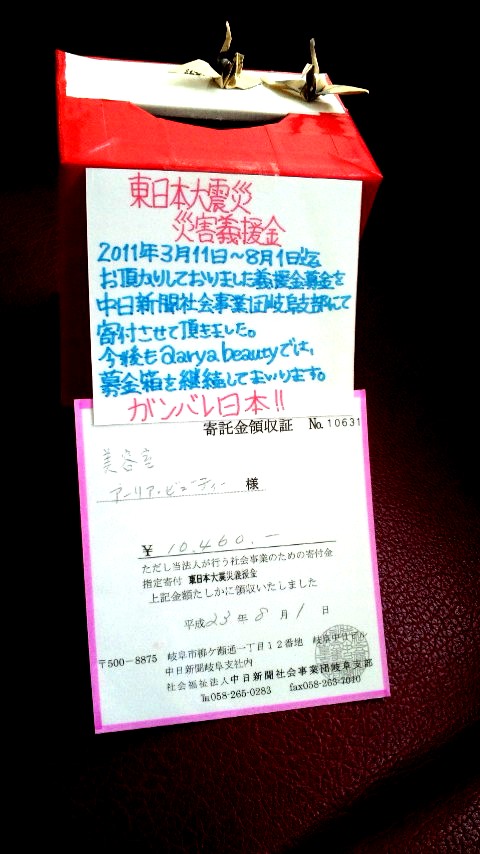 東日本大震災
災害義援金
2011年3月11日～8月1日迄
お預かりしておりました義援金募金を
中日新聞社会事業団岐阜支部にて
寄付させて頂きました。
今後も@arya beautyでは、
募金箱を継続してまいります。
ガンバレ日本!!
寄託金領収証 No. 10631
美容室
アーリア・ビューティー 様
¥ 10,460.―
ただし当法人が行う社会事業のための寄付金
指定寄付 東日本大震災義援金
上記金額たしかに領収いたしました
平成23年8月1日
〒500-8875 岐阜市柳ケ瀬通一丁目12番地 岐阜中日ビル
中日新聞岐阜支社内
社会福祉法人 中日新聞社会事業団岐阜支部
℡058-265-0283 fax058-263-7040